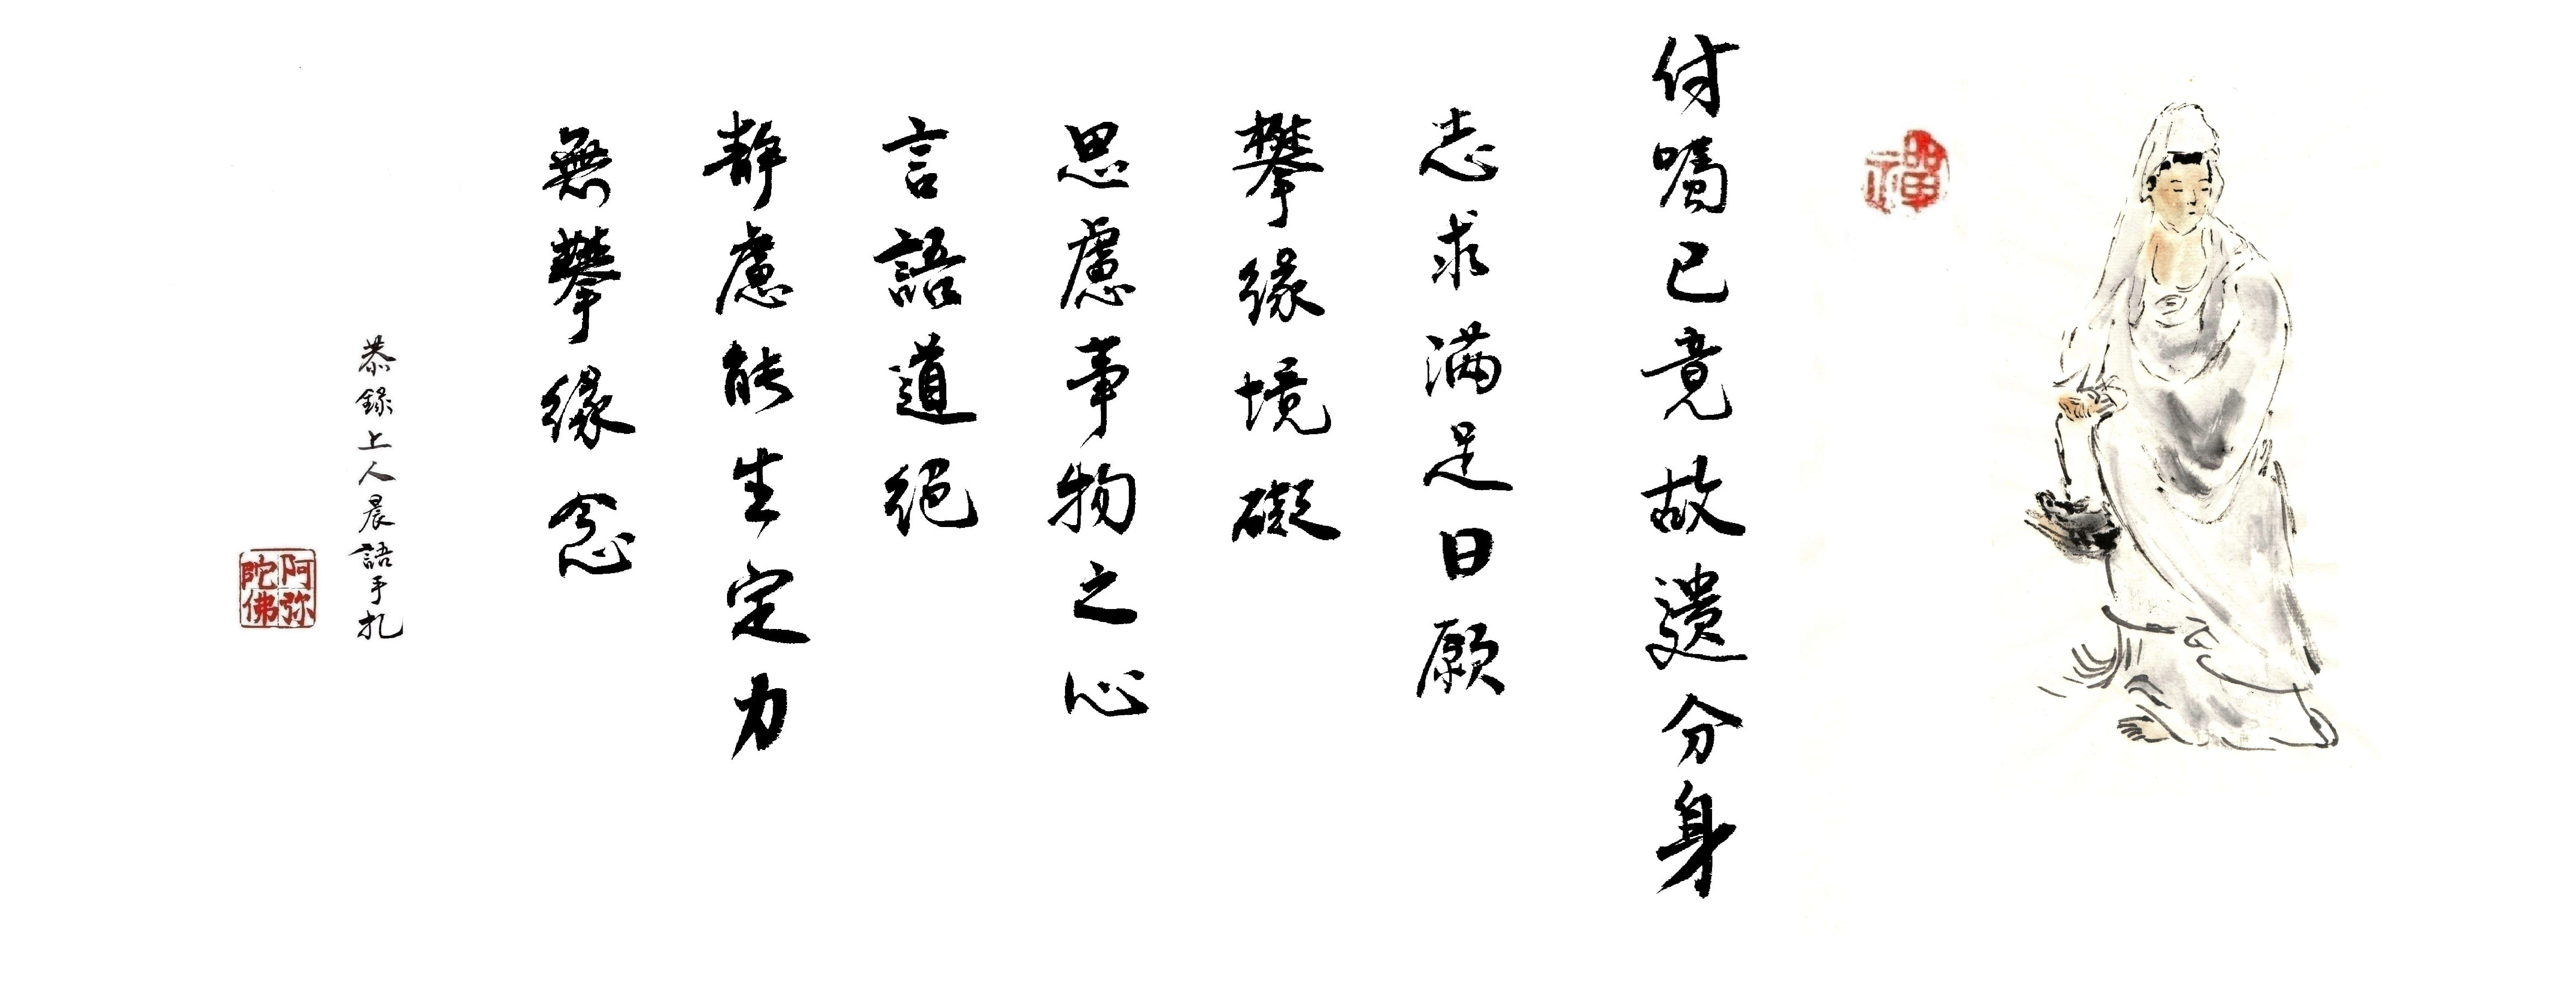 禪
付嘱已竟故遗分身
志求满足日願
攀缘境礙
思慮事物之心
言語道絕
静慮能生定力
無攀缘念
恭錄上人晨語手札
阿弥陀佛